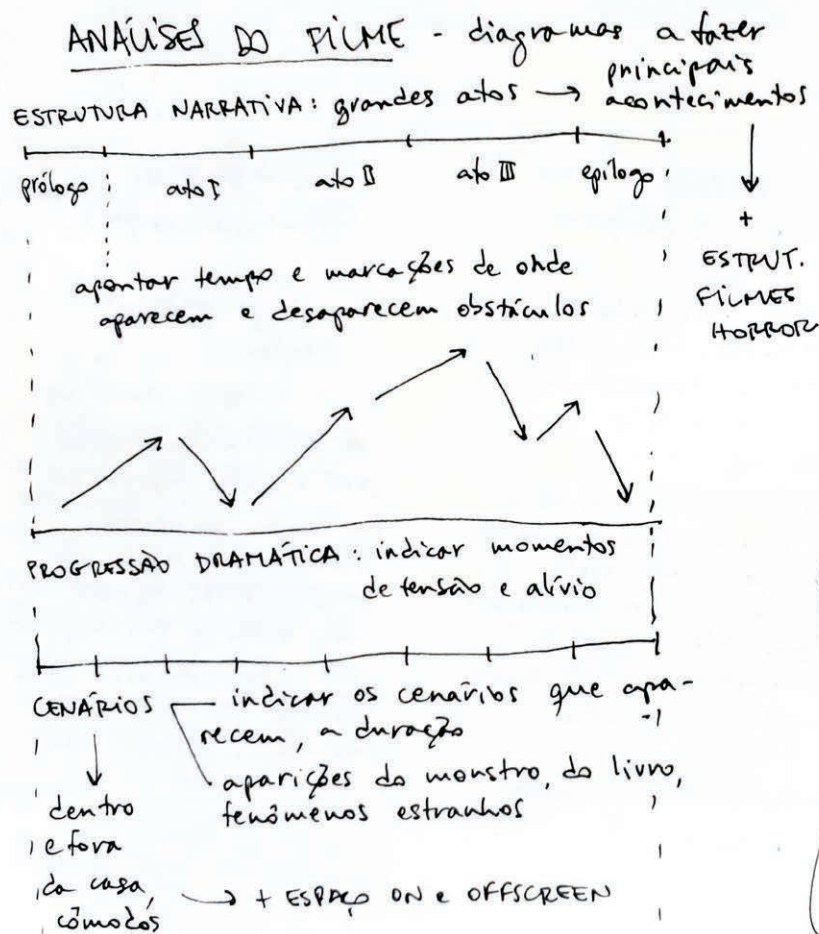 ANÁLISES DO FILME - diagramas a fazer
ESTRUTURA NARRATIVA: grandes atos → principais
acontecimentos
prólogo ato I ato II ato III epílogo
+
ESTRUT.
FILMES
HORROR
apontar tempo e marcações de onde
aparecem e desaparecem obstáculos
PROGRESSÃO DRAMÁTICA: indicar momentos
de tensão e alívio
CENÁRIOS
indicar os cenários que apa-
recem, a duração
aparições do monstro, do livro,
fenômenos estranhos
dentro
e fora
da casa,
cômodos
→ + ESPAÇO ON e OFFSCREEN